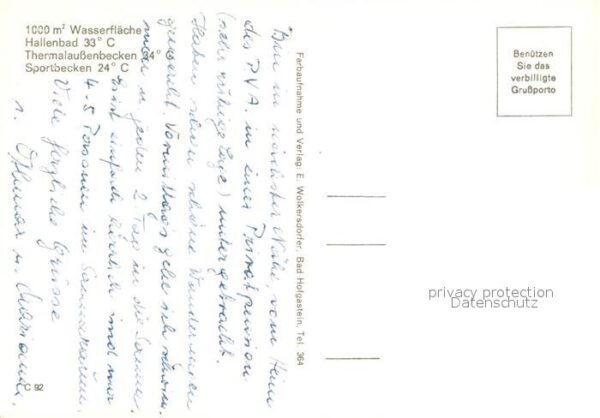 1000 m² Wasserfläche
Hallenbad 33° C
Thermalaußenbecken 34° C
Sportbecken 24° C
Bin in nächster Nähe, vom Heim
der PVA. in einer Privatpension
(sehr ruhige Lage) untergebracht.
Haben schon schöne Wanderungen
gemacht. Vormittags gehe ich schwim
men u. jeden 2. Tag in die Sauna.
Ist einfach herrlich und nur
4-5 Personen im Saunaraum.
Viele herzliche Grüsse
s. Othmar u. Marianne.
C 92
Farbaufnahme und Verlag: E. Wolkersdorfer, Bad Hofgastein, Tel. 364
Benützen
Sie das
verbilligte
Grußporto
privacy protection
Datenschutz